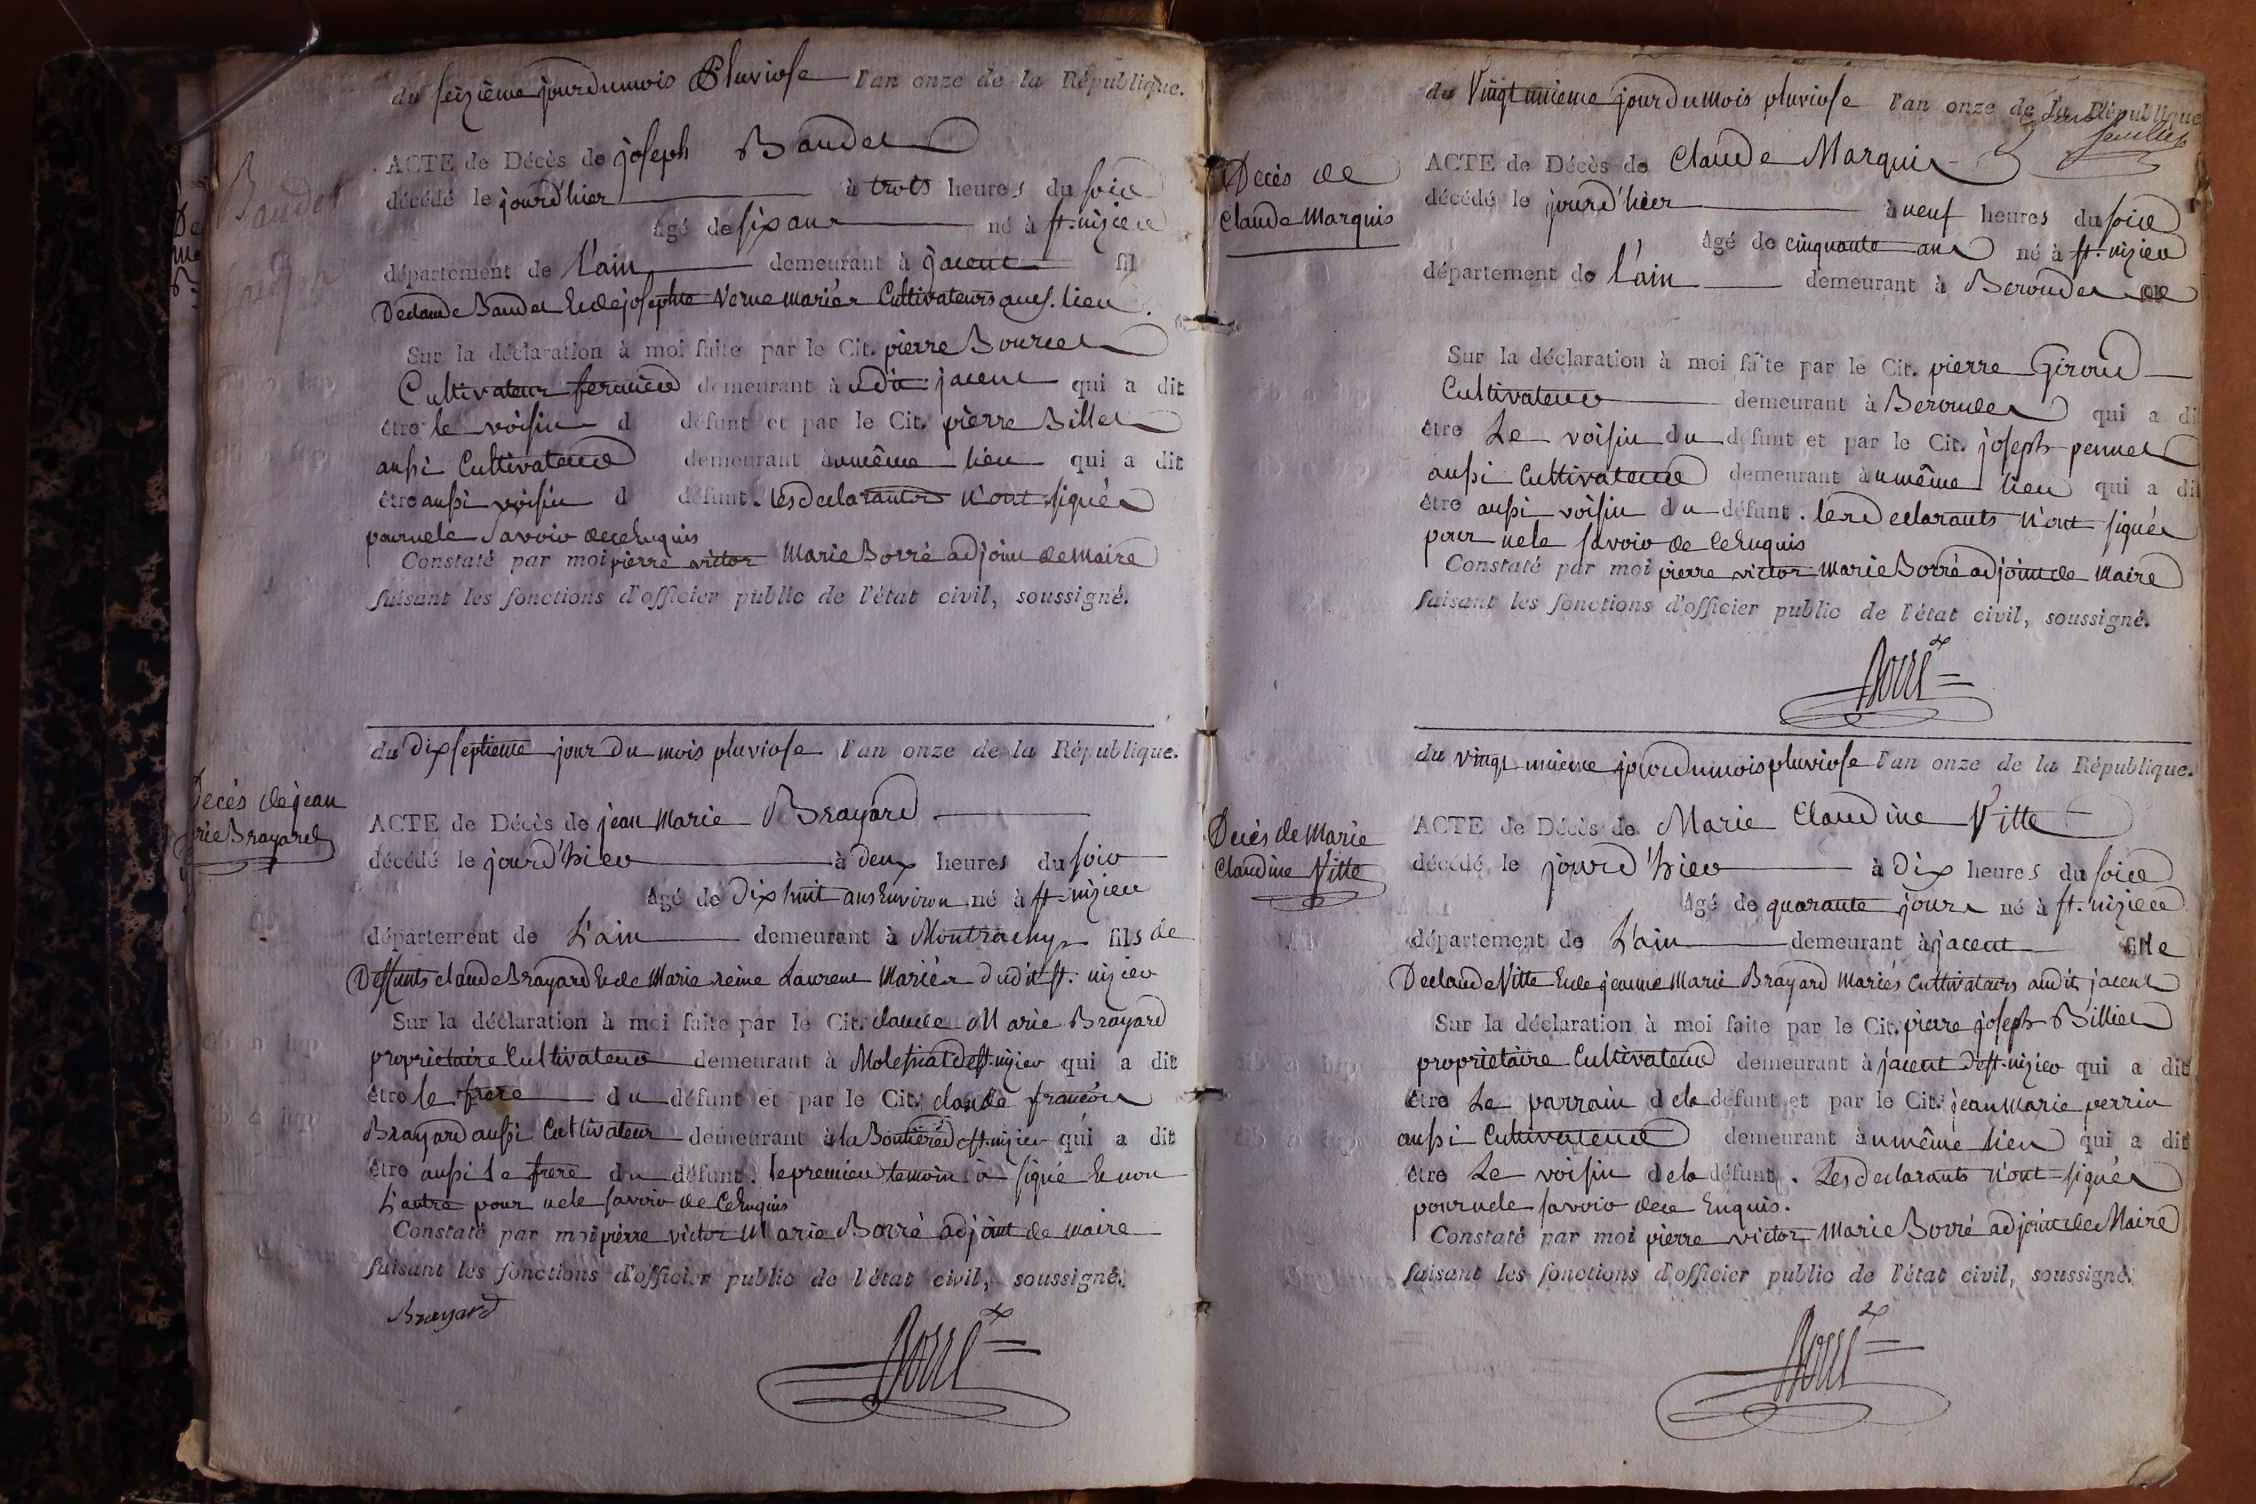 du seizième jour du mois Pluviose l'an onze de la République.
Baudet
ACTE de Décès de joseph Baudet
décédé le jourd'hier à trois heures du soir
âgé de six ans né à st. nizier
département de L'ain demeurant à jacent fil
De claude Baudet Et de josephte Verne mariés Cultivateurs aud. lieu
Sur la déclaration à moi faite par le Cit. pierre Bourcet
Cultivateur fermier demeurant à udit jacent qui a dit
être le voisin d défunt et par le Cit. pierre Billet
aussi Cultivateur demeurant à u même lieu qui a dit
être aussi voisin d défunt. les declarants n'ont signés
pour ne le savoir de ce Enquis
Constaté par moi pierre victor Marie Borré adjoint de maire
faisant les fonctions d'officier public de l'état civil, soussigné.
du dixseptieme jour du mois pluviose l'an onze de la République.
Decès de jean
rie Brayard
ACTE de Décès de jean Marie Brayard
décédé le jourd'hier à deux heures du soir
âgé de dix huit ans Environ né à st. nizier
département de L'ain demeurant à Montrachy fils de
Deffunts claude Brayard Et de Marie reine Laurent Mariés dudit st. nizier
Sur la déclaration à moi faite par le Cit. claude Marie Brayard
proprietaire Cultivateur demeurant à Molessiat de st. nizier qui a dit
être le frere du défunt et par le Cit. claude francois
Brayard aussi Cultivateur demeurant à la Boutière de st. nizier qui a dit
être aussi le frere du défunt. le premier temoin à signé Et non
L'autre pour ne le savoir de ce Enquis
Constaté par moi pierre victor Marie Borré adjoint de maire
faisant les fonctions d'officier public de l'état civil, soussigné.
Brayard
Borré
du Vingt unieme jour du Mois pluviose l'an onze de la République
feuillet
Decès de
Claude Marquis
ACTE de Décès de Claude Marquis
décédé le jourd'hier à neuf heures du soir
âgé de cinquante ans né à st. nizier
département de L'ain demeurant à Beroudet
Sur la déclaration à moi faite par le Cit. pierre Giroud
Cultivateur demeurant à Beroudet qui a di
être Le voisin du défunt et par le Cit. joseph pennet
aussi Cultivateur demeurant à u même lieu qui a dit
être aussi voisin du défunt. les declarants n'ont signés
pour ne le savoir de ce Enquis
Constaté par moi pierre victor Marie Borré adjoint de Maire
faisant les fonctions d'officier public de l'état civil, soussigné.
Borré
du vingt unieme jour du mois pluviose l'an onze de la République.
Decès de Marie
Claudine Vitte
ACTE de Décès de Marie Claudine Vitte
décédé le jourd'hier à Dix heures du soir
âgé de quarante jours né à st. nizier
département de L'ain demeurant à jacent fille
De claude Vitte Et de jeanne Marie Brayard Mariés Cultivateurs audit jacent
Sur la déclaration à moi faite par le Cit. pierre joseph Billiet
proprietaire Cultivateur demeurant à jacent de st. nizier qui a dit
être Le parrain de la défunt et par le Cit. jean Marie perrin
aussi Cultivateur demeurant à u même lien qui a dit
être Le voisin de la défunt. Les declarants n'ont signés
pour ne le savoir de ce Enquis.
Constaté par moi pierre victor Marie Borré adjoint de Maire
faisant les fonctions d'officier public de l'état civil, soussigné.
Borré